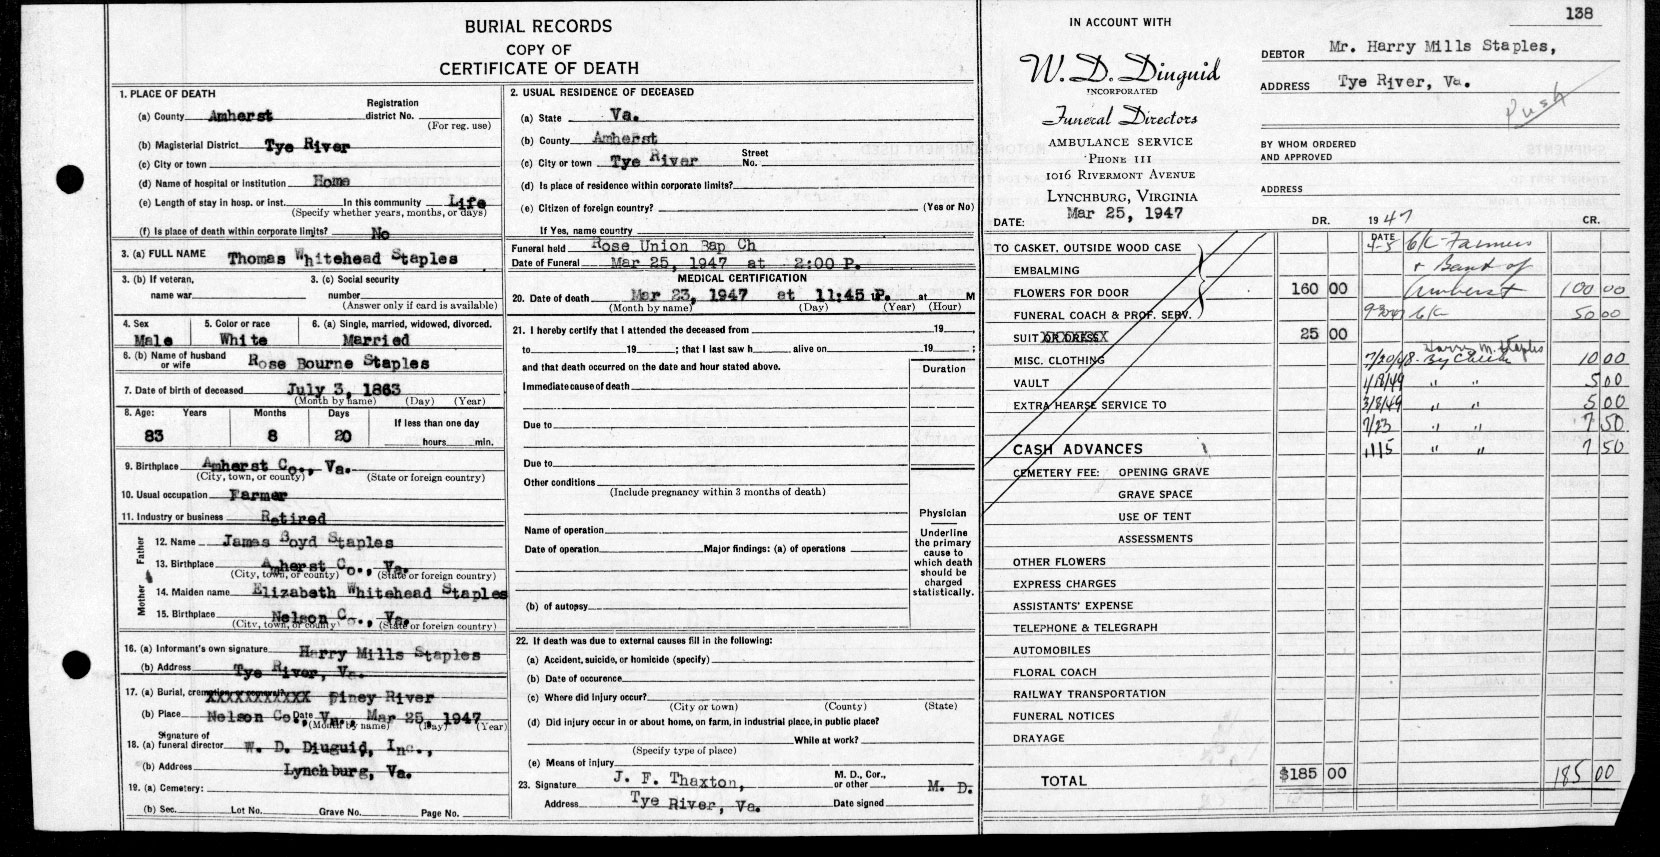 BURIAL RECORDS
COPY OF
CERTIFICATE OF DEATH
1. PLACE OF DEATH
(a) County Amherst Registration district No.
(For reg. use)
(b) Magisterial District Tye River
(c) City or town
(d) Name of hospital or institution Home
(e) Length of stay in hosp. or inst. In this community Life
(Specify whether years, months, or days)
(f) Is place of death within corporate limits? No
3. (a) FULL NAME Thomas Whitehead Staples
3. (b) If veteran, 3. (c) Social security
name war number
(Answer only if card is available)
4. Sex 5. Color or race 6. (a) Single, married, widowed, divorced.
Male White Married
6. (b) Name of husband or wife Rose Bourne Staples
7. Date of birth of deceased July 3, 1863
(Month by name) (Day) (Year)
8. Age: Years Months Days If less than one day
83 8 20 hours min.
9. Birthplace Amherst Co., Va.
(City, town, or county) (State or foreign country)
10. Usual occupation Farmer
11. Industry or business Retired
Father
12. Name James Boyd Staples
13. Birthplace Amherst Co., Va.
(City, town, or county) (State or foreign country)
Mother
14. Maiden name Elizabeth Whitehead Staples
15. Birthplace Nelson Co., Va.
(City, town, or county) (State or foreign country)
16. (a) Informant's own signature Harry Mills Staples
(b) Address Tye River, Va.
17. (a) Burial, cremation or removal? XXXXXXXXXXX Piney River
(b) Place Nelson Co., Va., Date Mar 25, 1947
(Month by name) (Day) (Year)
Signature of
18. (a) funeral director W. D. Diuguid, Inc.,
(b) Address Lynchburg, Va.
19. (a) Cemetery:
(b) Sec. Lot No. Grave No. Page No.
2. USUAL RESIDENCE OF DECEASED
(a) State Va.
(b) County Amherst
(c) City or town Tye River Street No.
(d) Is place of residence within corporate limits?
(e) Citizen of foreign country? (Yes or No)
If Yes, name country
Funeral held Rose Union Bap Ch
Date of Funeral Mar 25, 1947 at 2:00 P.
MEDICAL CERTIFICATION
20. Date of death Mar 23, 1947 at 11:45 P. at M
(Month by name) (Day) (Year) (Hour)
21. I hereby certify that I attended the deceased from 19 ,
to 19 ; that I last saw h alive on 19 ;
and that death occurred on the date and hour stated above.
Duration
Immediate cause of death
Due to
Due to
Other conditions
(Include pregnancy within 3 months of death)
Name of operation
Date of operation Major findings: (a) of operations
(b) of autopsy
Physician
Underline
the primary
cause to
which death
should be
charged
statistically.
22. If death was due to external causes fill in the following:
(a) Accident, suicide, or homicide (specify)
(b) Date of occurence
(c) Where did injury occur?
(City or town) (County) (State)
(d) Did injury occur in or about home, on farm, in industrial place, in public place?
While at work?
(Specify type of place)
(e) Means of injury
23. Signature J. F. Thaxton, M. D., Cor., or other M. D.
Address Tye River, Va. Date signed
138
IN ACCOUNT WITH
W. D. Diuguid
INCORPORATED
Funeral Directors
AMBULANCE SERVICE
PHONE 111
1016 RIVERMONT AVENUE
LYNCHBURG, VIRGINIA
DATE: Mar 25, 1947
DEBTOR Mr. Harry Mills Staples,
ADDRESS Tye River, Va.
Push
BY WHOM ORDERED
AND APPROVED
ADDRESS
DR. 1947 CR.
DATE
TO CASKET, OUTSIDE WOOD CASE 4-5 Ck-Farmers
EMBALMING + Bank of
FLOWERS FOR DOOR 160 00 Amherst 100 00
FUNERAL COACH & PROF. SERV. Ck 50 00
SUIT OR DRESS 25 00
Harry M. Staples
MISC. CLOTHING 7/20/48 - By Check 10 00
VAULT 1/18/49 " " 5 00
EXTRA HEARSE SERVICE TO 3/8/49 " " 5 00
7/23 " " 7 50
CASH ADVANCES 11/5 " " 7 50
CEMETERY FEE: OPENING GRAVE
GRAVE SPACE
USE OF TENT
ASSESSMENTS
OTHER FLOWERS
EXPRESS CHARGES
ASSISTANTS' EXPENSE
TELEPHONE & TELEGRAPH
AUTOMOBILES
FLORAL COACH
RAILWAY TRANSPORTATION
FUNERAL NOTICES
DRAYAGE
TOTAL $185 00 185 00